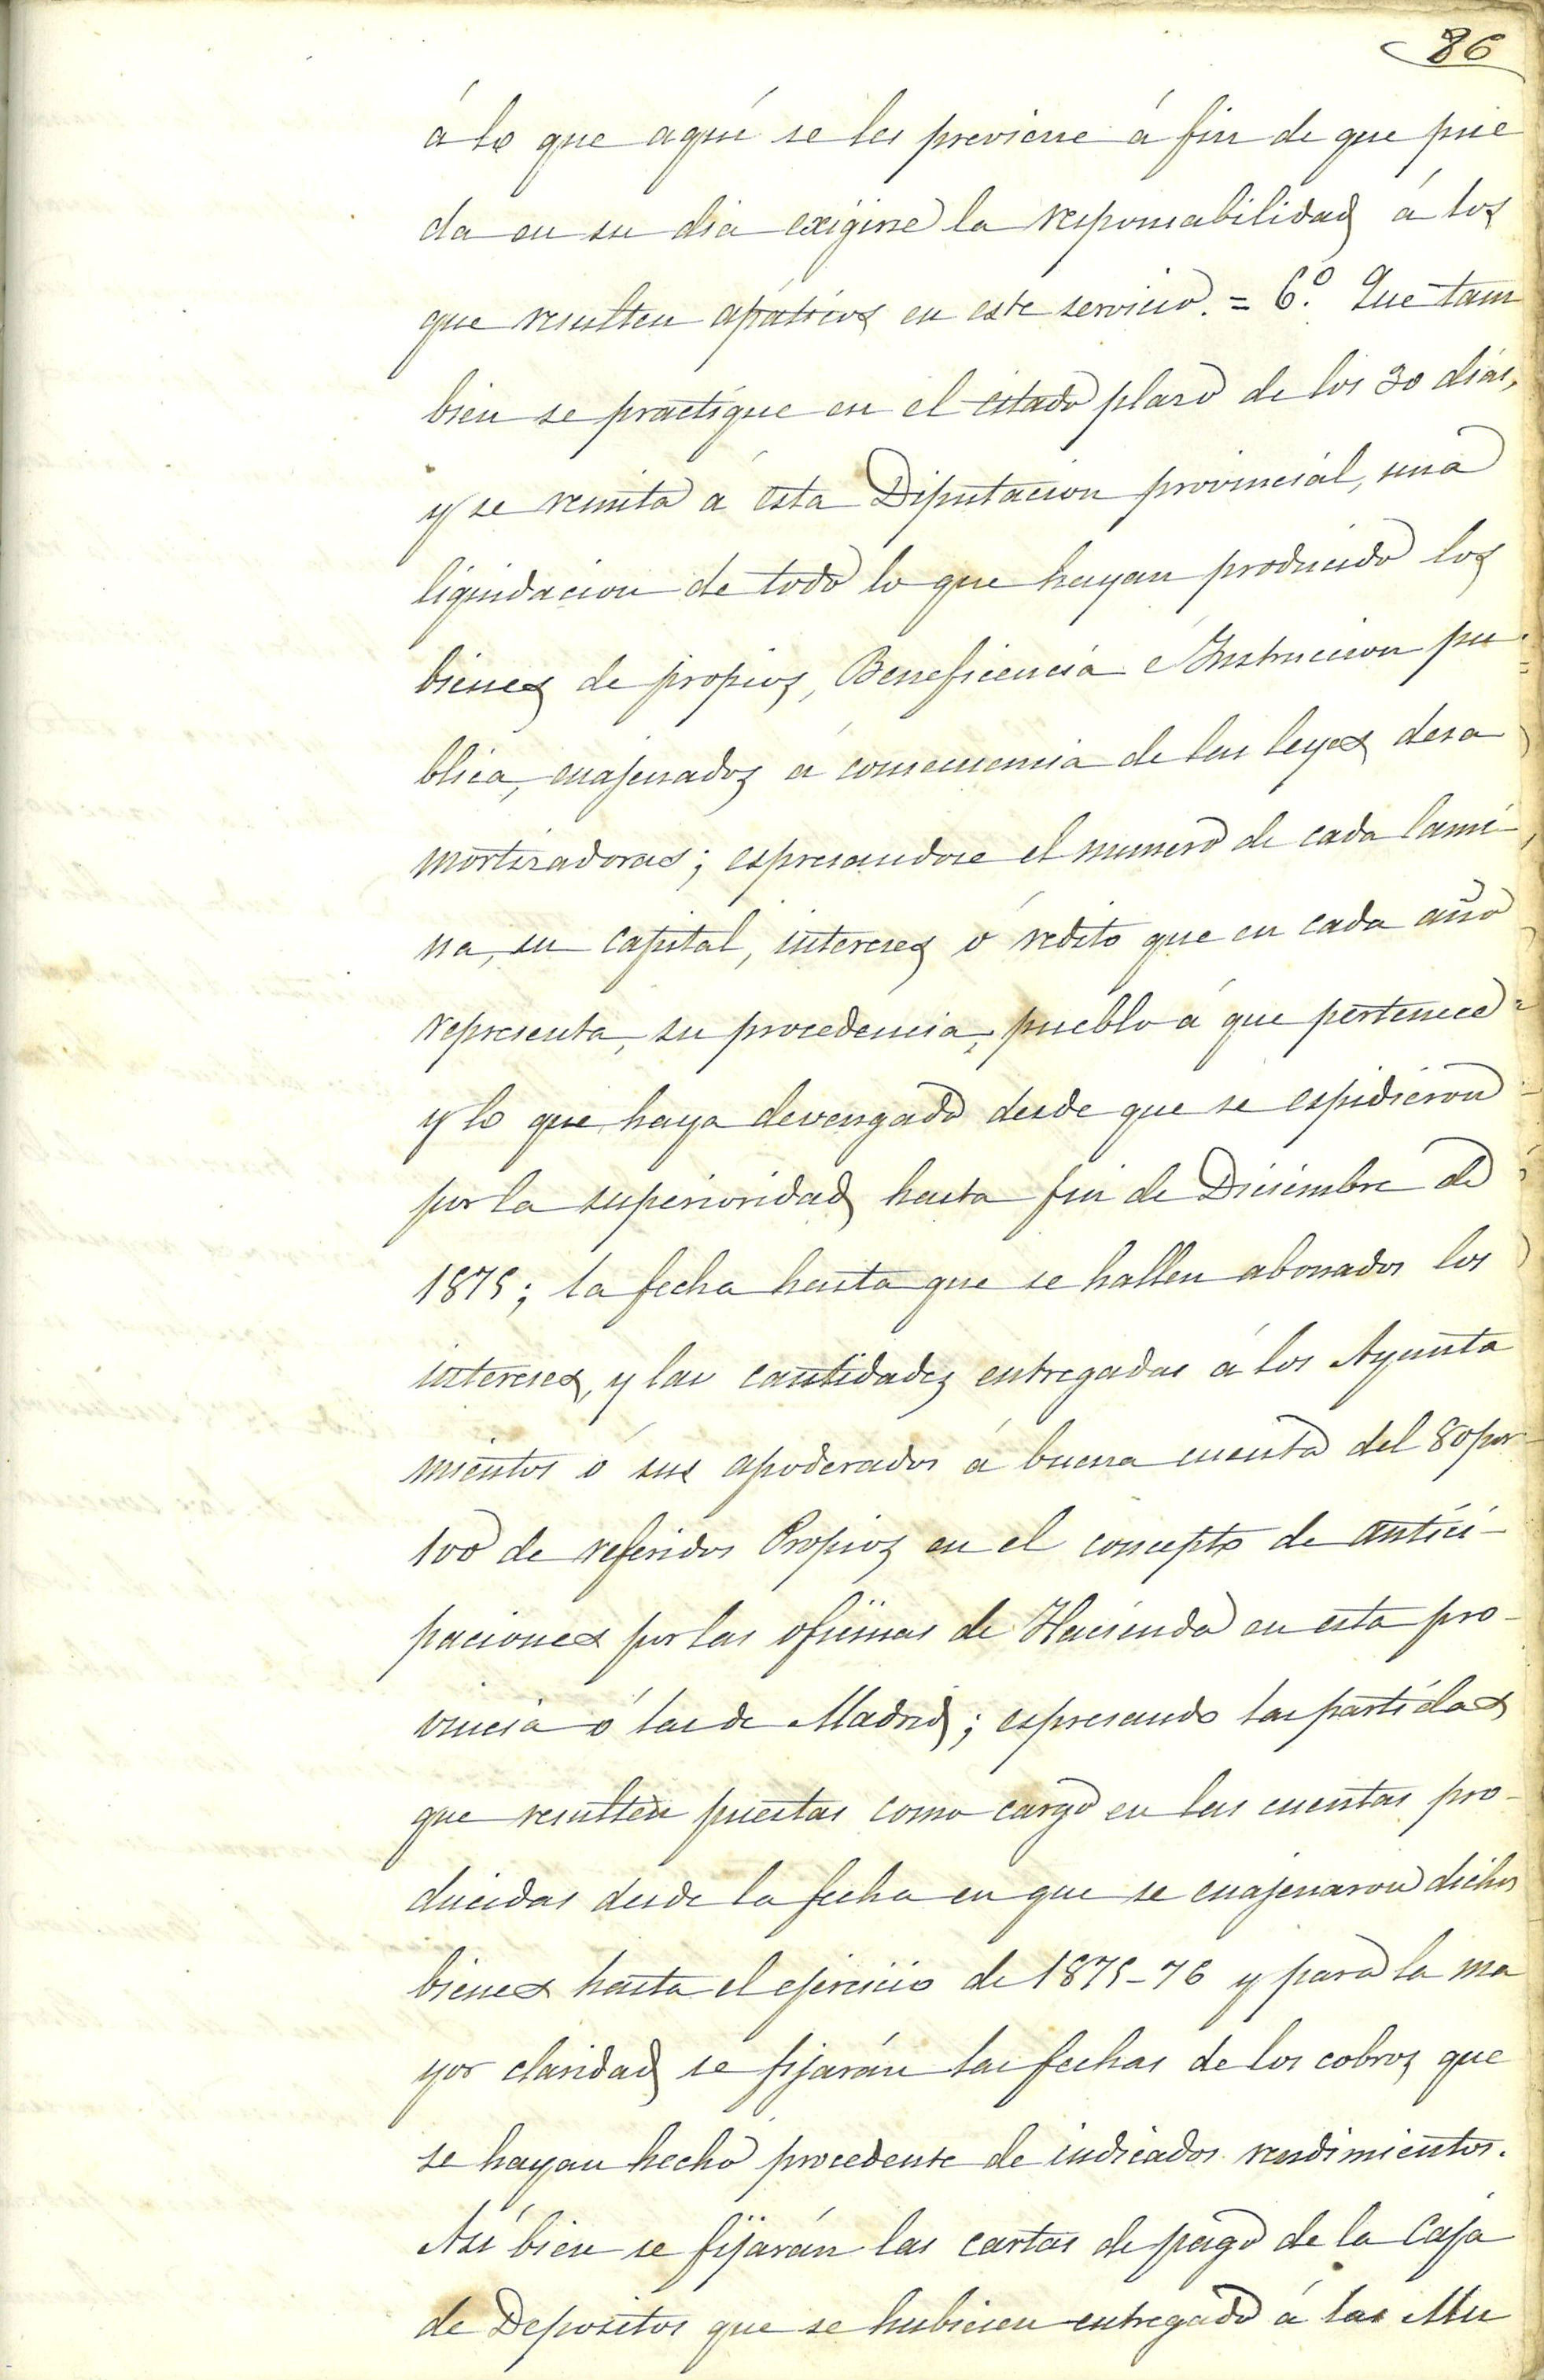 86
á lo que aquí se les previene á fin de que pue
da en su dia exigirse la responsabilidad á los
que resulten apáticos en este servicio. = 6.º Que tam
bien se practique en el citado plazo de los 30 dias,
y se remita á esta Diputacion provincial, una
liquidacion de todo lo que hayan producido los
bienes de propios, Beneficencia é Instruccion pu
blica, enajenados á consecuencia de las leyes desa
mortizadoras; espresandose el numero de cada lami-
na, su capital, intereses ó redito que en cada año
representa, su procedencia, pueblo á que pertenece
y lo que haya devengado desde que se espidieron
por la superioridad hasta fin de Diciembre de
1875; la fecha hasta que se hallen abonados los
intereses, y las cantidades entregadas á los Ayunta
mientos ó sus apoderados á buena cuenta del 80 por
100 de referidos Propios en el concepto de antici-
paciones por las oficinas de Hacienda en esta pro-
vincia ó las de Madrid; espresando las partidas
que resulten puestas como cargo en las cuentas pro-
ducidas desde la fecha en que se enajenaron dichos
bienes hasta el ejercicio de 1875-76 y para la ma
yor claridad se fijarán las fechas de los cobros que
se hayan hecho procedente de indicados rendimientos.
Asi bien se fijarán las cartas de pago de la Caja
de Depositos que se hubiesen entregado á las Mu